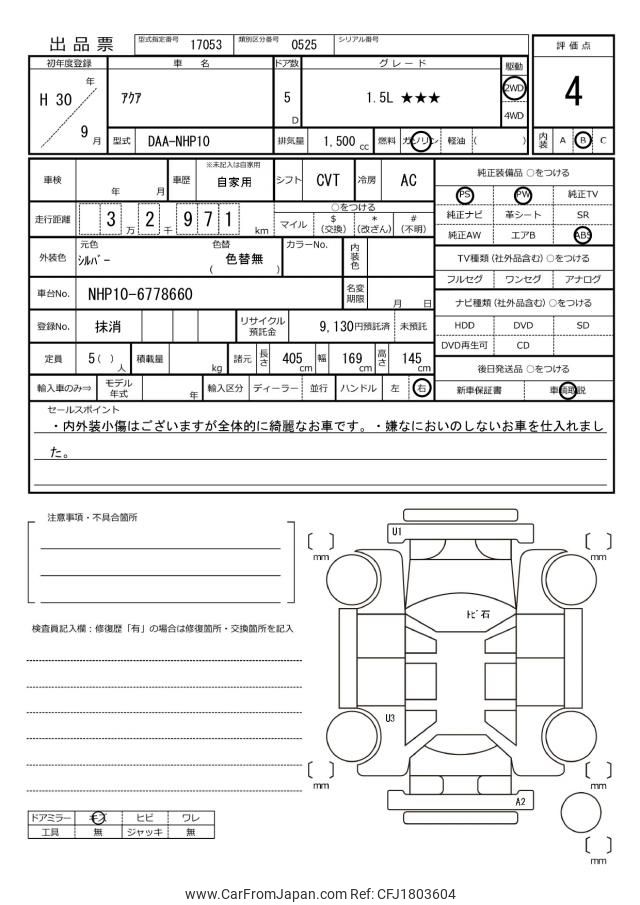 出品票 型式指定番号 17053 類別区分番号 0525 シリアル番号
評価点
4
内装 A B C
初年度登録 車名 ドア数 グレード 駆動
H 30 年 9 月
アクア 5 D 1.5L ★★★ 2WD 4WD
型式 DAA-NHP10 排気量 1,500 cc 燃料 ガソリン 軽油 ( )
車検 年 月 車歴 ※未記入は自家用 自家用 シフト CVT 冷房 AC
走行距離 3 万 2 千 9 7 1 km ○をつける
マイル $(交換) *(改ざん) #(不明)
外装色 元色 シルバー 色替 ( 色替無 ) カラーNo. 内装色
車台No. NHP10-6778660 名変期限 月 日
登録No. 抹消 リサイクル預託金 9,130円預託済 未預託
定員 5 ( ) 人 積載量 kg 諸元 長さ 405 cm 幅 169 cm 高さ 145 cm
輸入車のみ⇒ モデル年式 年 輸入区分 ディーラー 並行 ハンドル 左 右
純正装備品 ○をつける
PS PW 純正TV
純正ナビ 革シート SR
純正AW エアB ABS
TV種類(社外品含む)○をつける
フルセグ ワンセグ アナログ
ナビ種類(社外品含む)○をつける
HDD DVD SD
DVD再生可 CD
後日発送品 ○をつける
新車保証書 車輌取説
セールスポイント
・内外装小傷はございますが全体的に綺麗なお車です。・嫌なにおいのしないお車を仕入れまし
た。
注意事項・不具合箇所
検査員記入欄：修復歴「有」の場合は修復箇所・交換箇所を記入
ドアミラー キズ ヒビ ワレ
工具 無 ジャッキ 無
U1
mm
mm
トビ石
U3
mm
mm
A2
mm
www.CarFromJapan.com Ref: CFJ1803604